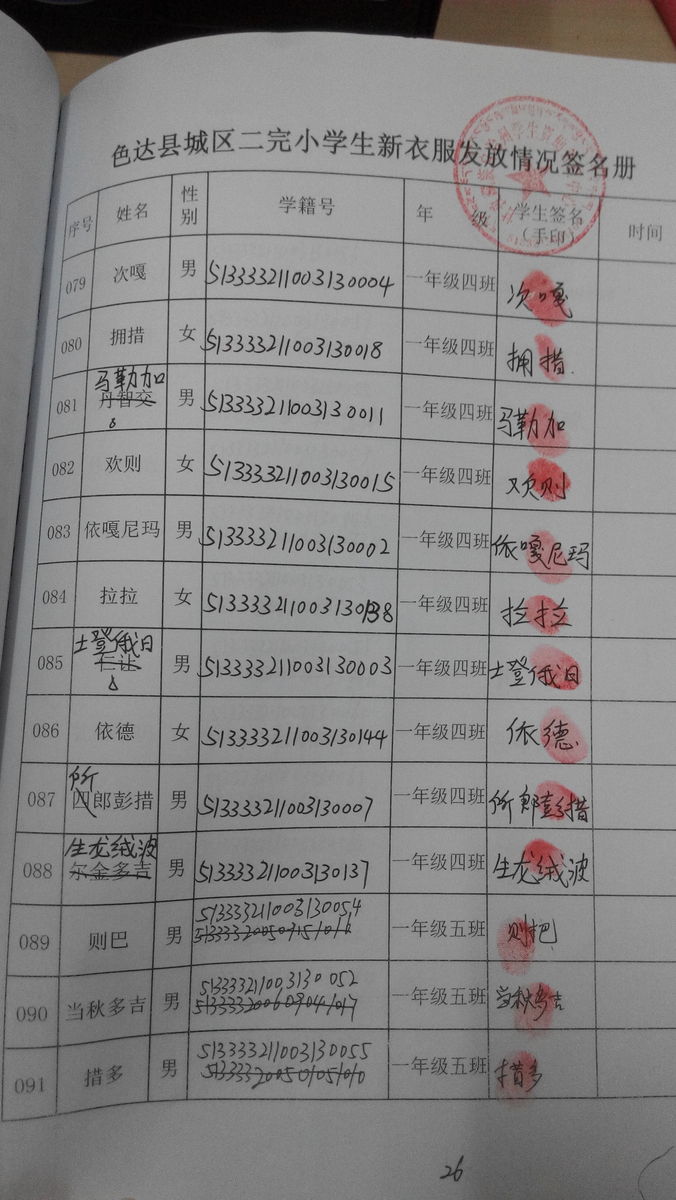 色达县城区二完小学生新衣服发放情况签名册
序号 姓名 性别 学籍号 年 级 学生签名（手印） 时间
079 次嘎 男 513333211003130004 一年级四班 次嘎
080 拥措 女 513333211003130018 一年级四班 拥措
081 马勒加 丹智交 男 513333211003130011 一年级四班 马勒加
082 欢则 女 513333211003130015 一年级四班 欢则
083 依嘎尼玛 男 513333211003130002 一年级四班 依嘎尼玛
084 拉拉 女 513333211003130138 一年级四班 拉拉
085 土登俄日 男 513333211003130003 一年级四班 土登俄日
086 依德 女 513333211003130144 一年级四班 依德
087 所 四郎彭措 男 513333211003130007 一年级四班 所郎彭措
088 生龙绒波 尔金多吉 男 513333211003130137 一年级四班 生龙绒波
089 则巴 男 513333211003130054 一年级五班 则把
090 当秋多吉 男 513333211003130052 一年级五班 当秋多吉
091 措多 男 513333211003130055 一年级五班 措多
26